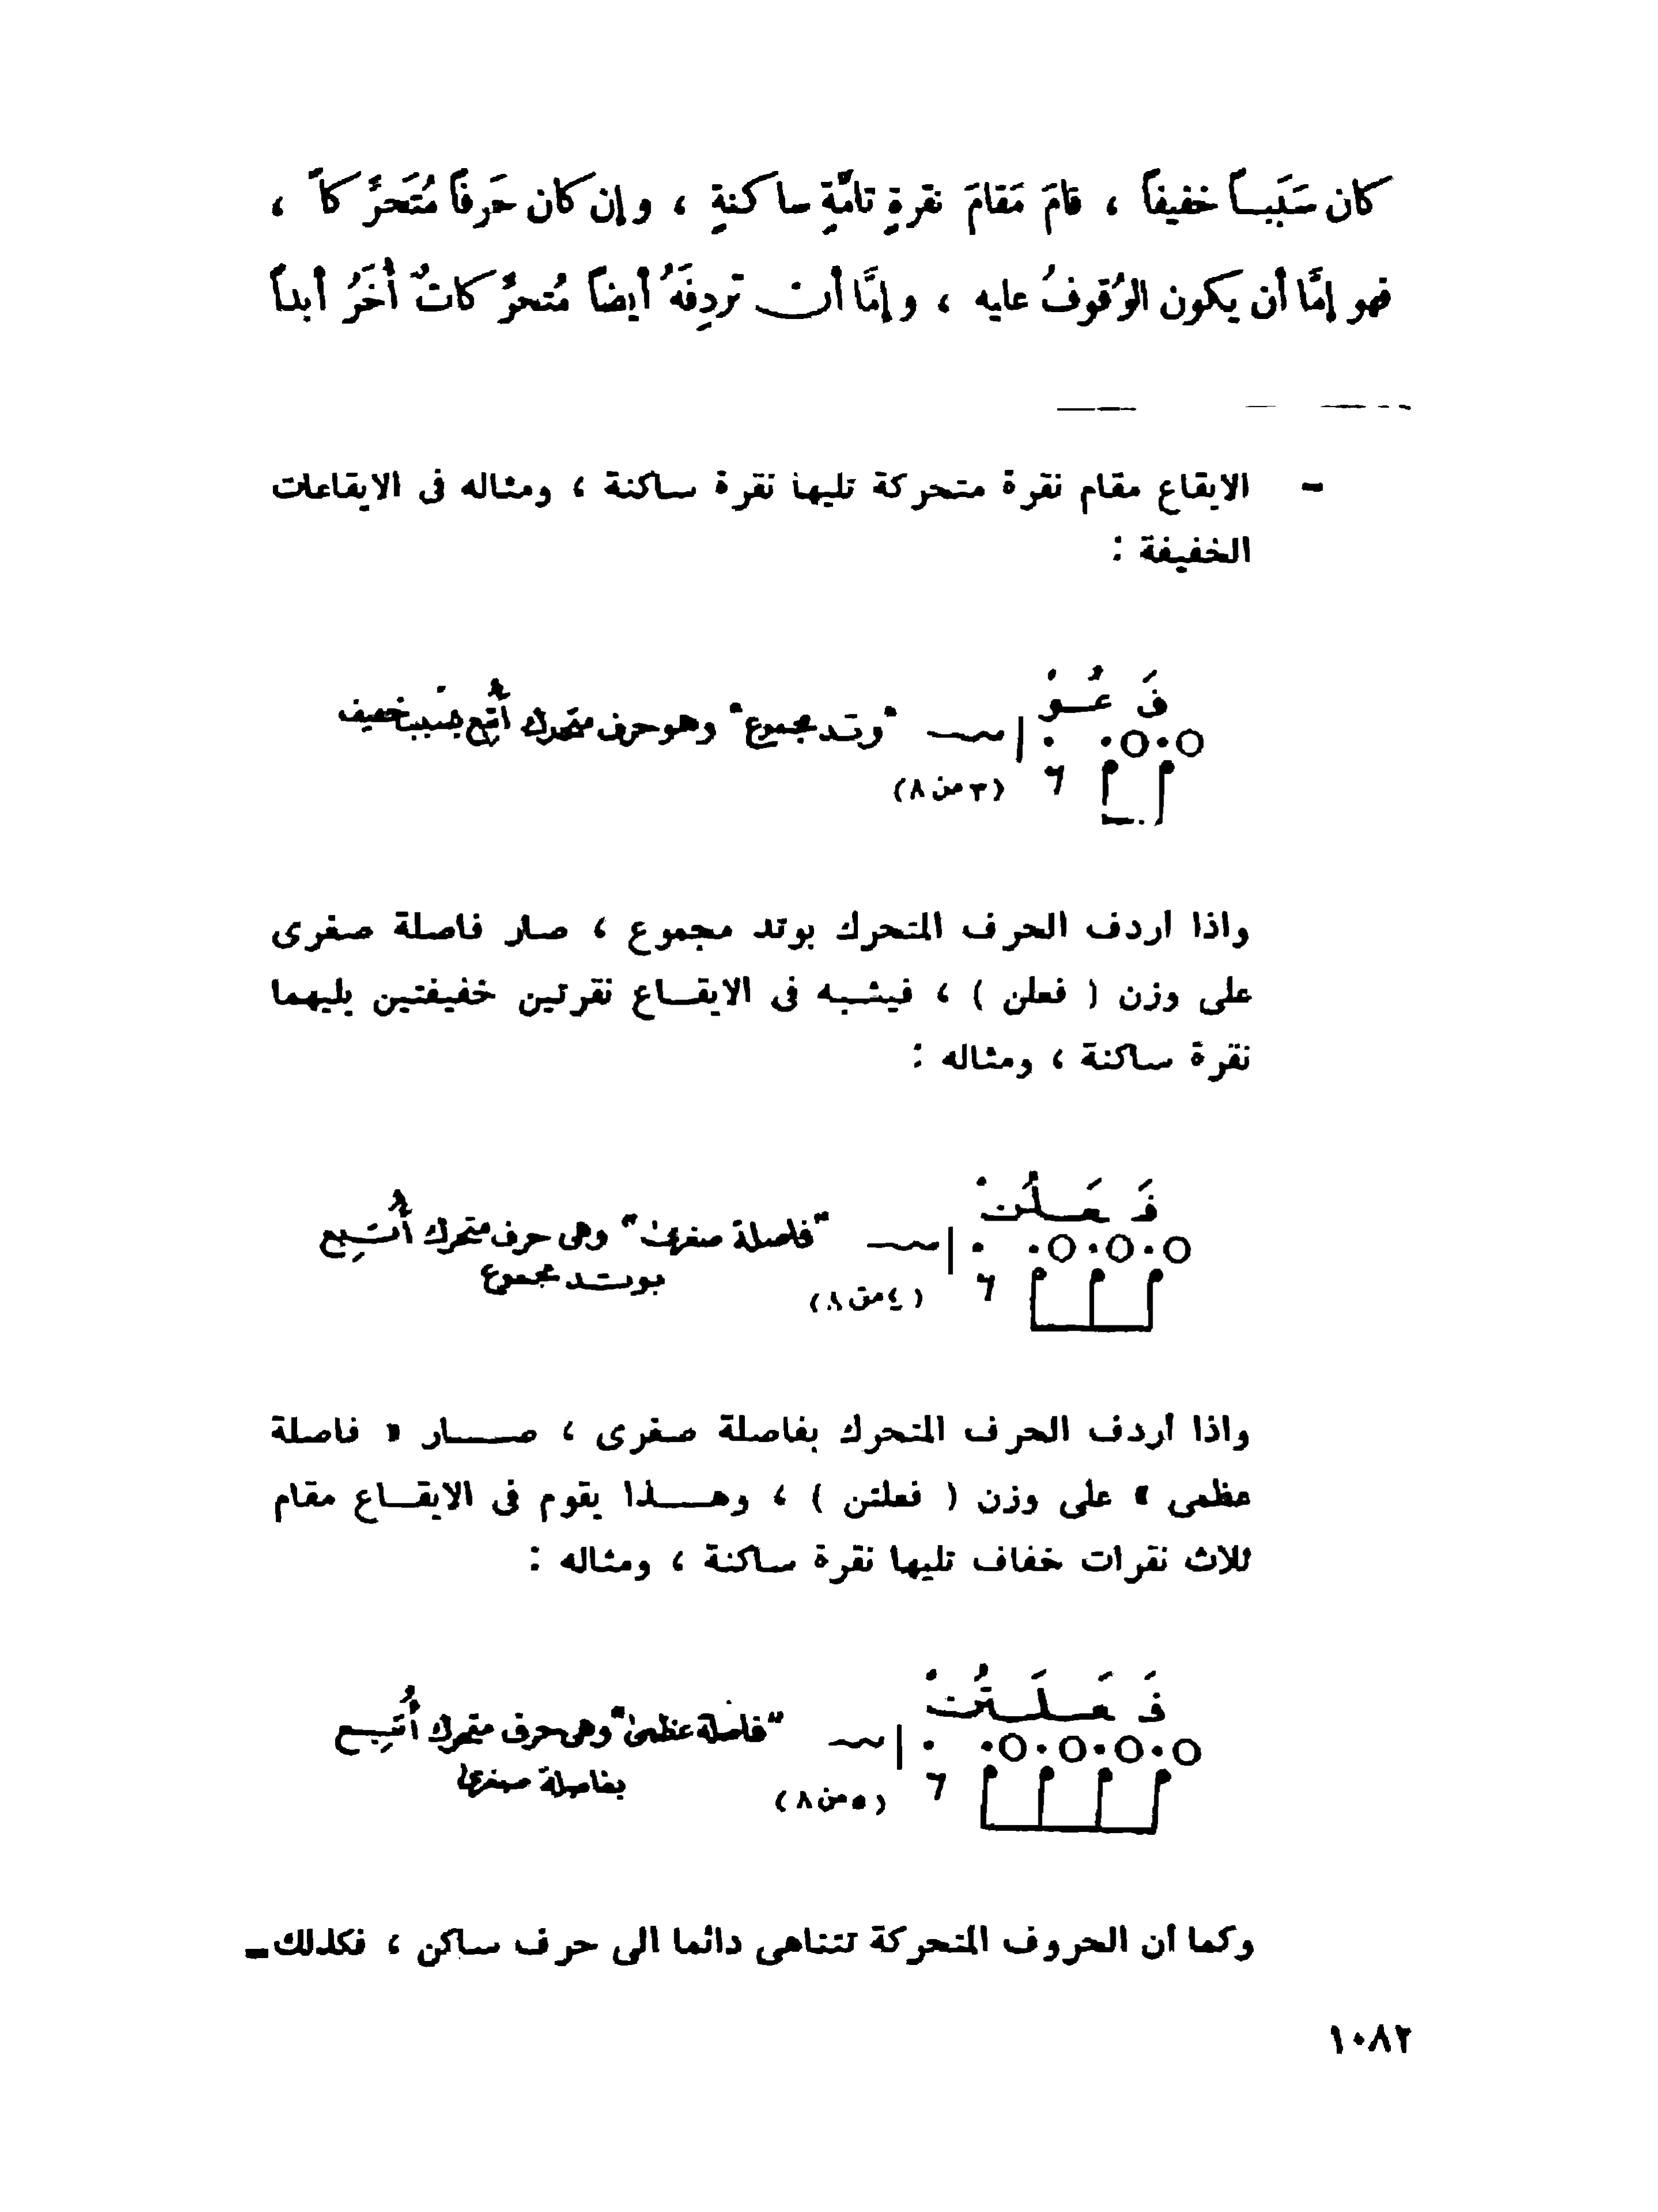 كان سَبَبــاً خفيفاً ، قامَ مَقامَ نقرةٍ تامَّةٍ ساكنةٍ ، وإن كان حَرفاً مُتَحرِّكاً ،
فهو إمَّا أن يكون الوُقوفُ عليه ، وإمَّا أن تردِفَهُ أيضاً مُتحرِّكاتٌ أُخَرُ أبداً
– الايقاع مقام نقرة متحركة تليها نقرة ساكنة ، ومثاله فى الايقاعات
الخفيفة :
فَ عُــوْ
O.O. . | "وتد مجموع" وهو حرف متحرك أُتبع بسبب خفيف
(٣ من ٨)
واذا اردف الحرف المتحرك بوتد مجموع ، صار فاصلة صغرى
على وزن ( فعلن ) ، فيشبه فى الايقــاع نقرتين خفيفتين يليهما
نقرة ساكنة ، ومثاله :
فَ عَــلُنْ
O.O.O. . | "فاصلة صغرى" وهى حرف متحرك أُتــبع
بوتــد مجموع
(٤ من ٨)
واذا أردف الحرف المتحرك بفاصلة صغرى ، صـــار « فاصلة
عظمى » على وزن ( فعلتن ) ، وهـــذا يقوم فى الايقــاع مقام
ثلاث نقرات خفاف تليها نقرة ساكنة ، ومثاله :
فَ عَــلَــتُنْ
O.O.O.O. . | "فاصلة عظمى" وهى حرف متحرك أُتبــع
بفاصلة صغرى
(٥ من ٨)
وكما أن الحروف المتحركة تتناهى دائما الى حرف ساكن ، فكذلك –
١٠٨٢